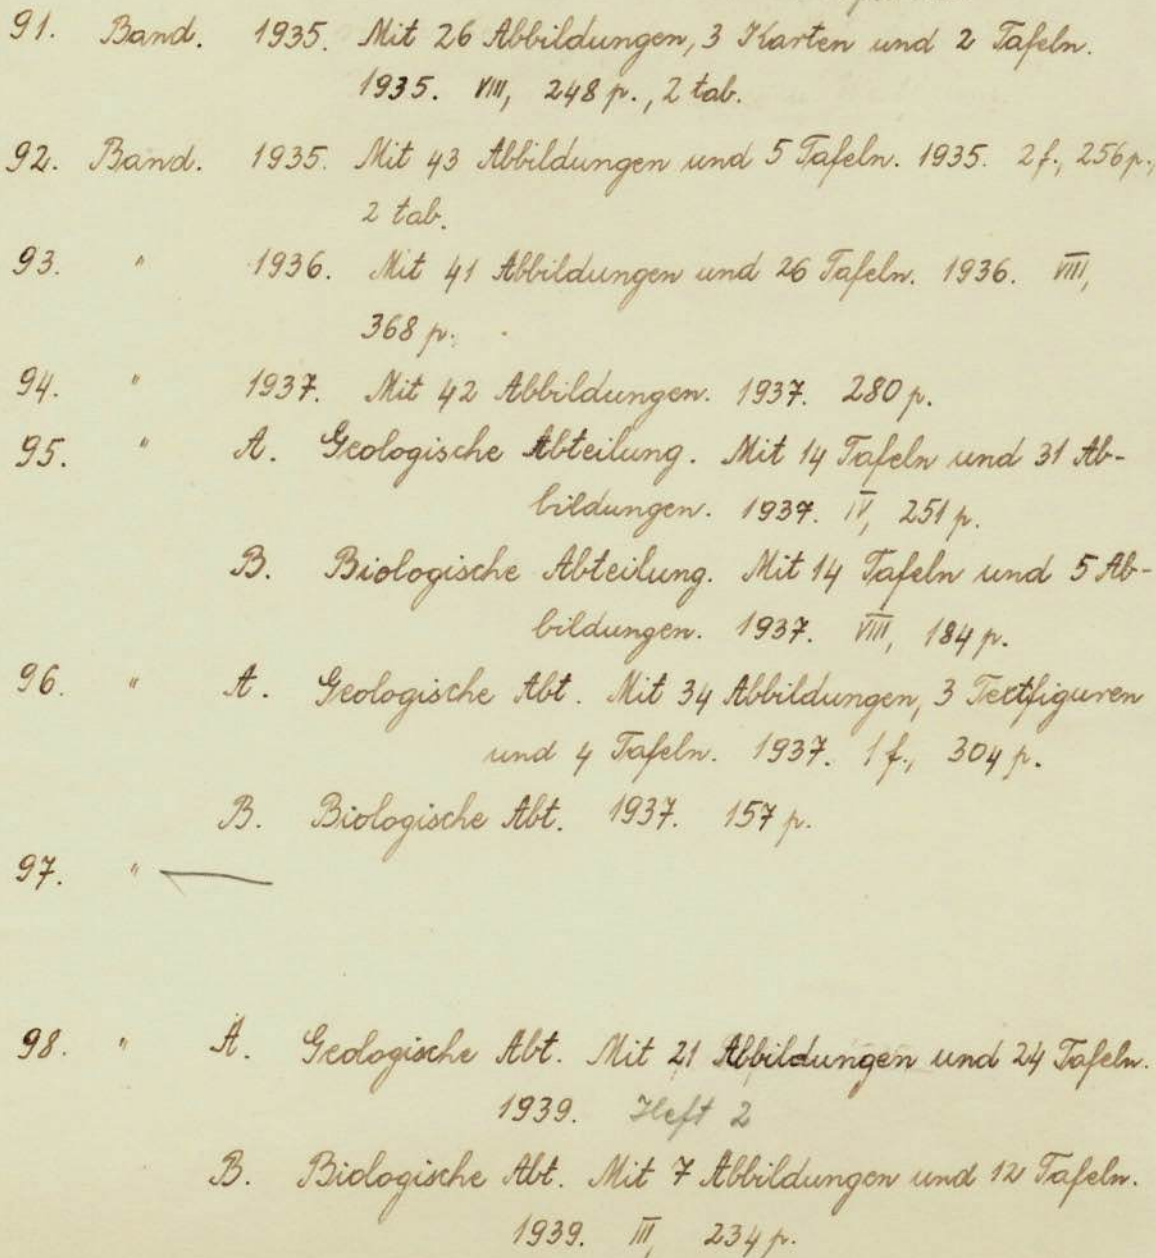 91. Band. 1935. Mit 26 Abbildungen, 3 Karten und 2 Tafeln.
1935. VIII, 248 p., 2 tab.
92. Band. 1935. Mit 43 Abbildungen und 5 Tafeln. 1935. 2 f., 256 p.,
2 tab.
93. " 1936. Mit 41 Abbildungen und 26 Tafeln. 1936. VIII,
368 p.
94. " 1937. Mit 42 Abbildungen. 1937. 280 p.
95. " A. Geologische Abteilung. Mit 14 Tafeln und 31 Ab-
bildungen. 1937. IV, 251 p.
B. Biologische Abteilung. Mit 14 Tafeln und 5 Ab-
bildungen. 1937. VIII, 184 p.
96. " A. Geologische Abt. Mit 34 Abbildungen, 3 Textfiguren
und 4 Tafeln. 1937. 1 f., 304 p.
B. Biologische Abt. 1937. 157 p.
97. " —
98. " A. Geologische Abt. Mit 21 Abbildungen und 24 Tafeln.
1939. Heft 2
B. Biologische Abt. Mit 7 Abbildungen und 12 Tafeln.
1939. III, 234 p.